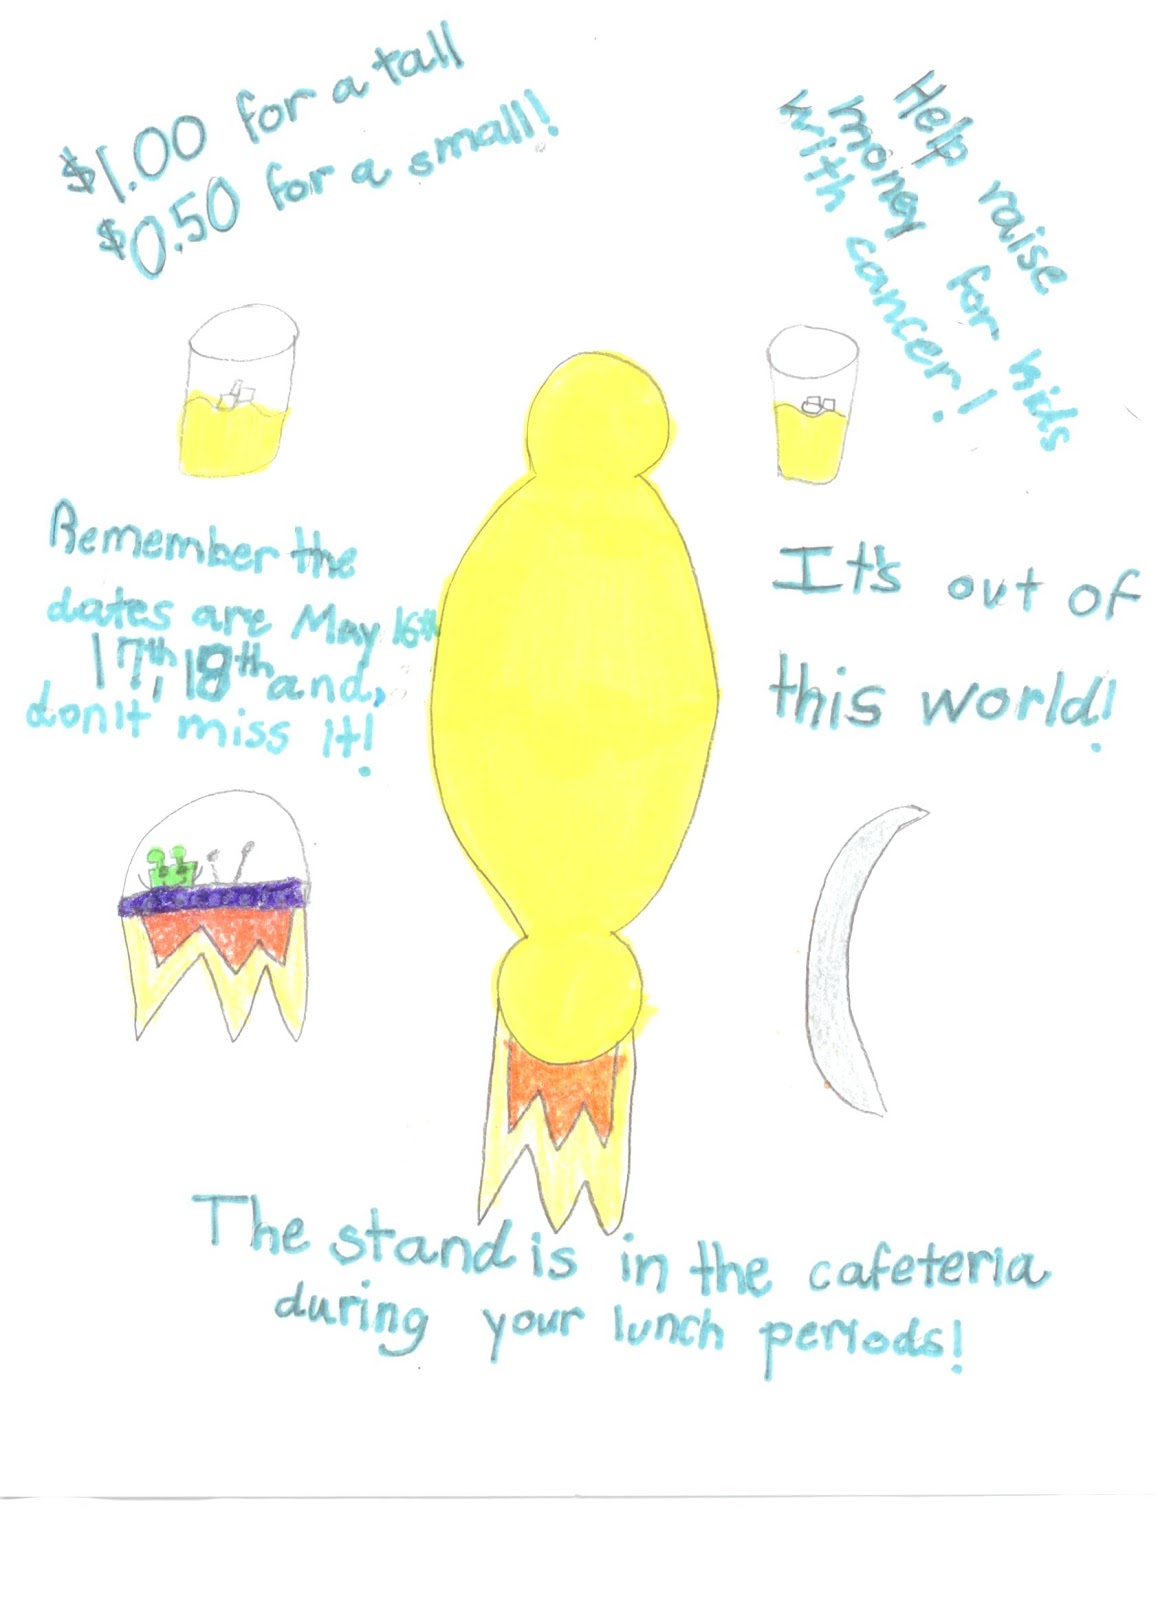 $1.00 for a tall
$0.50 for a small!
Help raise
money for kids
with cancer!
Remember the
dates are May 16th
17th, 18th and,
don't miss it!
It's out of
this world!
The stand is in the cafeteria
during your lunch periods!